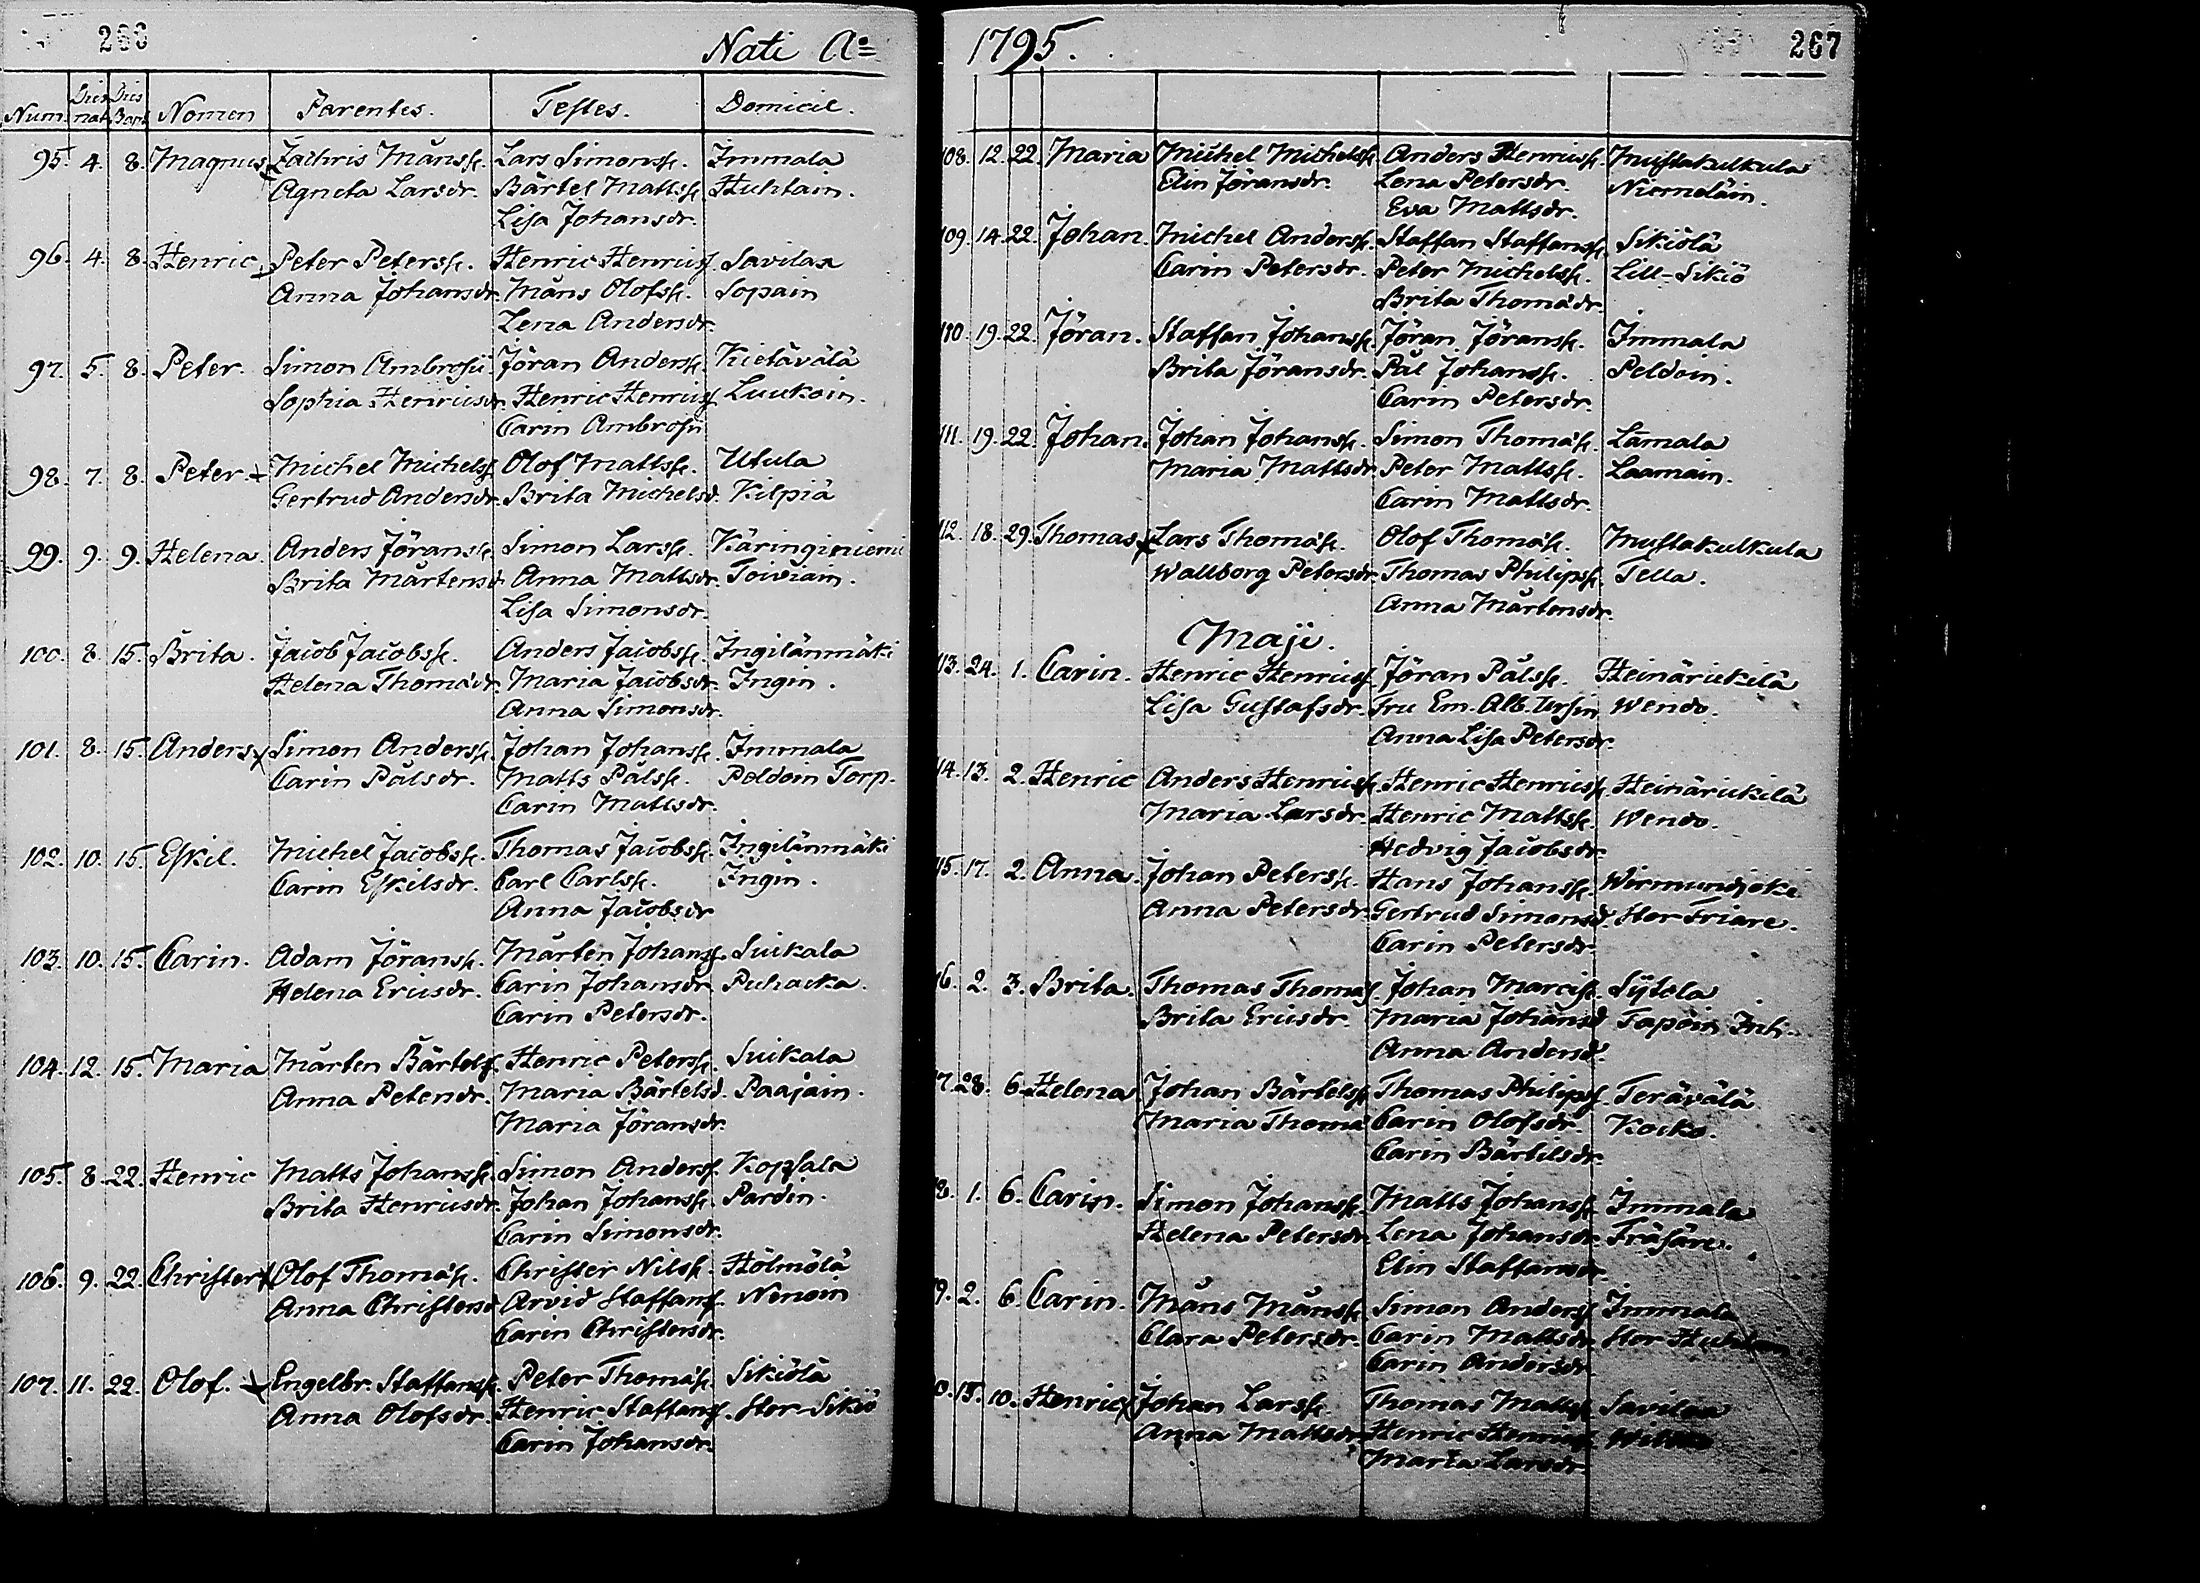 266
Nati Ao
Num. Dies nat. Dies Bapt. Nomen Parentes. Testes. Domicil.
95. 4. 8. Magnus Zachris Månss. Lars Simonss. Immala
Agneta Larsdr. Bärtel Mattss. Huhtain.
Lisa Johansdr.
96. 4. 8. Henric Peter Peterss. Henric Henricss. Savilax
Anna Johansdr. Måns Olofss. Sopain
Lena Andersdr.
97. 5. 8. Peter. Simon Ambrosii Jöran Anderss. Kietävälä
Sophia Henricsdr. Henric Henricss. Luukoin.
Carin Ambrosii
98. 7. 8. Peter. Michel Michelss. Olof Mattss. Utula
Gertrud Andersdr. Brita Michelsd. Kilpiä
99. 9. 9. Helena. Anders Jöranss. Simon Larss. Käringiniemi
Brita Mårtensd. Anna Mattsdr. Toiviain.
Lisa Simonsdr.
100. 8. 15. Brita. Jacob Jacobss. Anders Jacobss. Ingilänmäki
Helena Thomædr. Maria Jacobsdr. Ingin.
Anna Simonsdr.
101. 8. 15. Anders Simon Anderss. Johan Johanss. Immala
Carin Pålsdr. Matts Pålss. Peldoin Torp.
Carin Mattsdr.
102. 10. 15. Eskil. Michel Jacobss. Thomas Jacobss. Ingilänmäki
Carin Eskilsdr. Carl Carlss. Ingin.
Anna Jacobsdr
103. 10. 15. Carin. Adam Jöranss. Mårten Johanss. Suikala
Helena Ericsdr. Carin Johansdr Puhacka.
Carin Petersdr.
104. 12. 15. Maria Mårten Bärtelss. Henric Peterss. Suikala
Anna Petersdr. Maria Bärtelsd. Paajain.
Maria Jöransdr.
105. 8. 22. Henric Matts Johanss. Simon Anderss. Kopsala
Brita Henricsdr. Johan Johanss. Pardin.
Carin Simonsdr.
106. 9. 22. Christer Olof Thomæss. Christer Nilss. Hölmölä
Anna Christersd. Arvid Staffanss. Ninoin
Carin Christersdr.
107. 11. 22. Olof. Engelbr. Staffanss. Peter Thomæss. Sikiölä
Anna Olofsdr. Henric Staffanss. Stor-Sikiö
Carin Johansdr.
1795.
267
108. 12. 22. Maria Michel Michelss. Anders Henricss. Mustakulkula
Elin Jöransdr. Lena Petersdr. Niemeläin.
Eva Mattsdr.
109. 14. 22. Johan. Michel Anderss. Staffan Staffanss. Sikiölä
Carin Petersdr. Peter Michelss. Lill-Sikiö
Brita Thomædr.
110. 19. 22. Jöran. Staffan Johanss. Jöran Jöranss. Immala
Brita Jöransdr. Pål Johanss. Peldoin.
Carin Petersdr.
111. 19. 22. Johan. Johan Johanss. Simon Thomæss. Lamala
Maria Mattsdr. Peter Mattss. Laamain.
Carin Mattsdr.
112. 18. 29. Thomas Lars Thomæss. Olof Thomæss. Mustakulkula
Wallborg Petersdr. Thomas Philipss. Tella.
Anna Mårtensdr.
Maji.
13. 24. 1. Carin. Henric Henricss. Jöran Pålss. Heinärickilä
Lisa Gustafsdr. Fru Em. Alb. Wendo.
Anna Lisa Petersdr.
14. 13. 2. Henric Anders Henricss. Henric Henricss. Heinärickilä
Maria Larsdr. Henric Mattss. Wendo.
Hedvig Jacobsdr.
15. 17. 2. Anna. Johan Peterss. Hans Johanss. Wirmundjoki
Anna Petersdr. Gertrud Simonsd. Stor Friare.
Carin Petersdr.
16. 2. 3. Brita. Thomas Thomæss. Johan Marciss. Sÿtola
Brita Ericsdr. Maria Johansd. Tapoin Inh.
Anna Andersd.
17. 28. 6. Helena Johan Bärtelss. Thomas Philipss. Terävälä
Maria Thomæ Carin Olofsdr. Kocko.
Carin Bärtilsdr.
18. 1. 6. Carin. Simon Johanss. Matts Johanss. Immala
Helena Petersdr. Lena Johansdr. Fräsäre.
Elin Staffansdr.
19. 2. 6. Carin. Måns Månss. Simon Anderss. Immala
Clara Petersdr. Carin Mattsdr. Stor
Carin Andersdr.
0. 15. 10. Henric Johan Larss. Thomas Mattss. Savilax
Anna Mattsdr. Henric Henricss.
Maria Larsdr.